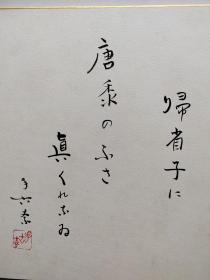 帰省子に
唐黍のふさ
真くれなゐ